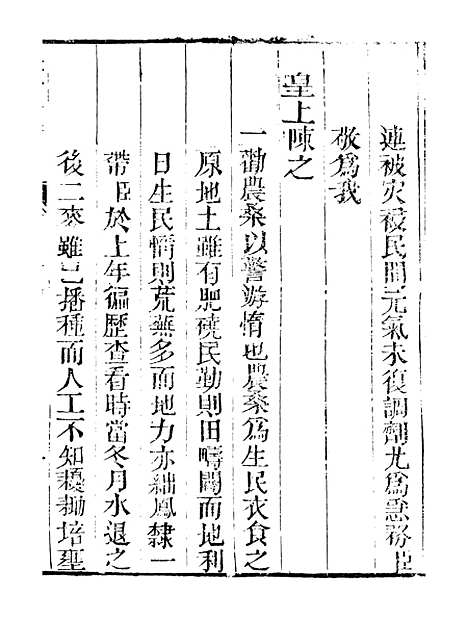 連被灾祲民間元氣未復調劑尤爲急務臣
敬爲我
皇上陳之
一勸農桑以警游惰也農桑爲生民衣食之
原地土雖有肥磽民勤則田疇闢而地利
日生民惰則荒蕪多而地力亦絀鳳隸一
帶臣於上年徧歷查看時當冬月水退之
後二麥雖已播種而人工不知耰耡培壅